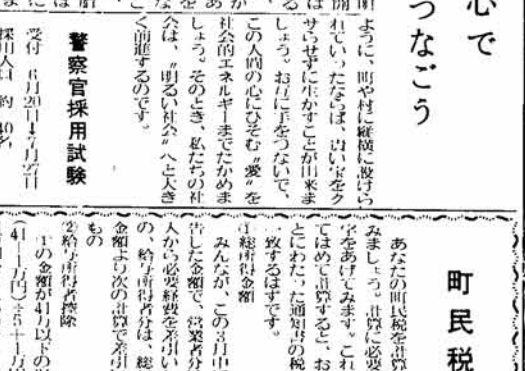 心で
つなごう
ように、町や村に縦横に設けら
れていったならば、尊い宝をク
サらせずに生かすことが出来ま
しょう。お互に手をつないで、
この人間の心にひそむ〝愛〟を
社会的エネルギーまでたかめま
しょう。そのとき、私たちの社
会は、〝明るい社会〟へと大き
く前進するのです。
警察官採用試験
受付 6月20日→7月27日
採用人員 約 40名
町民税
あなたの町民税を計算
みましょう。計算に必要
字をあげてみます。これ
てはめて計算すると、お
とにわたった通知書の税
一致するはずです。
①総所得金額
みんなが、この3月中
告した金額で、営業者分
人から必要経費を差引い
の、給与所得者分は、総
金額より次の計算で差引
もの
②給与所得者控除
①の金額が41万以下の
(41－1万円)÷5＋1万